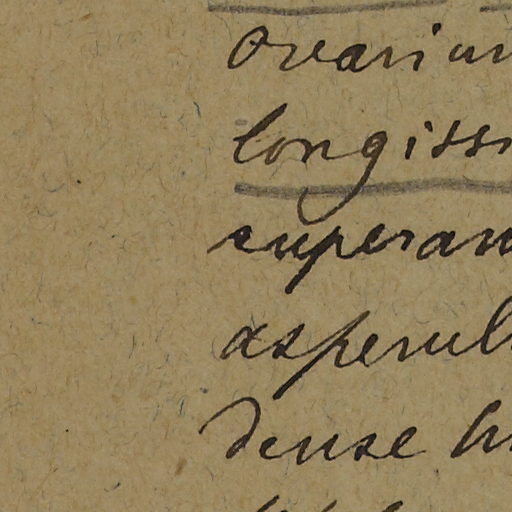 ovariu
longiss
superan
asperul
dense h